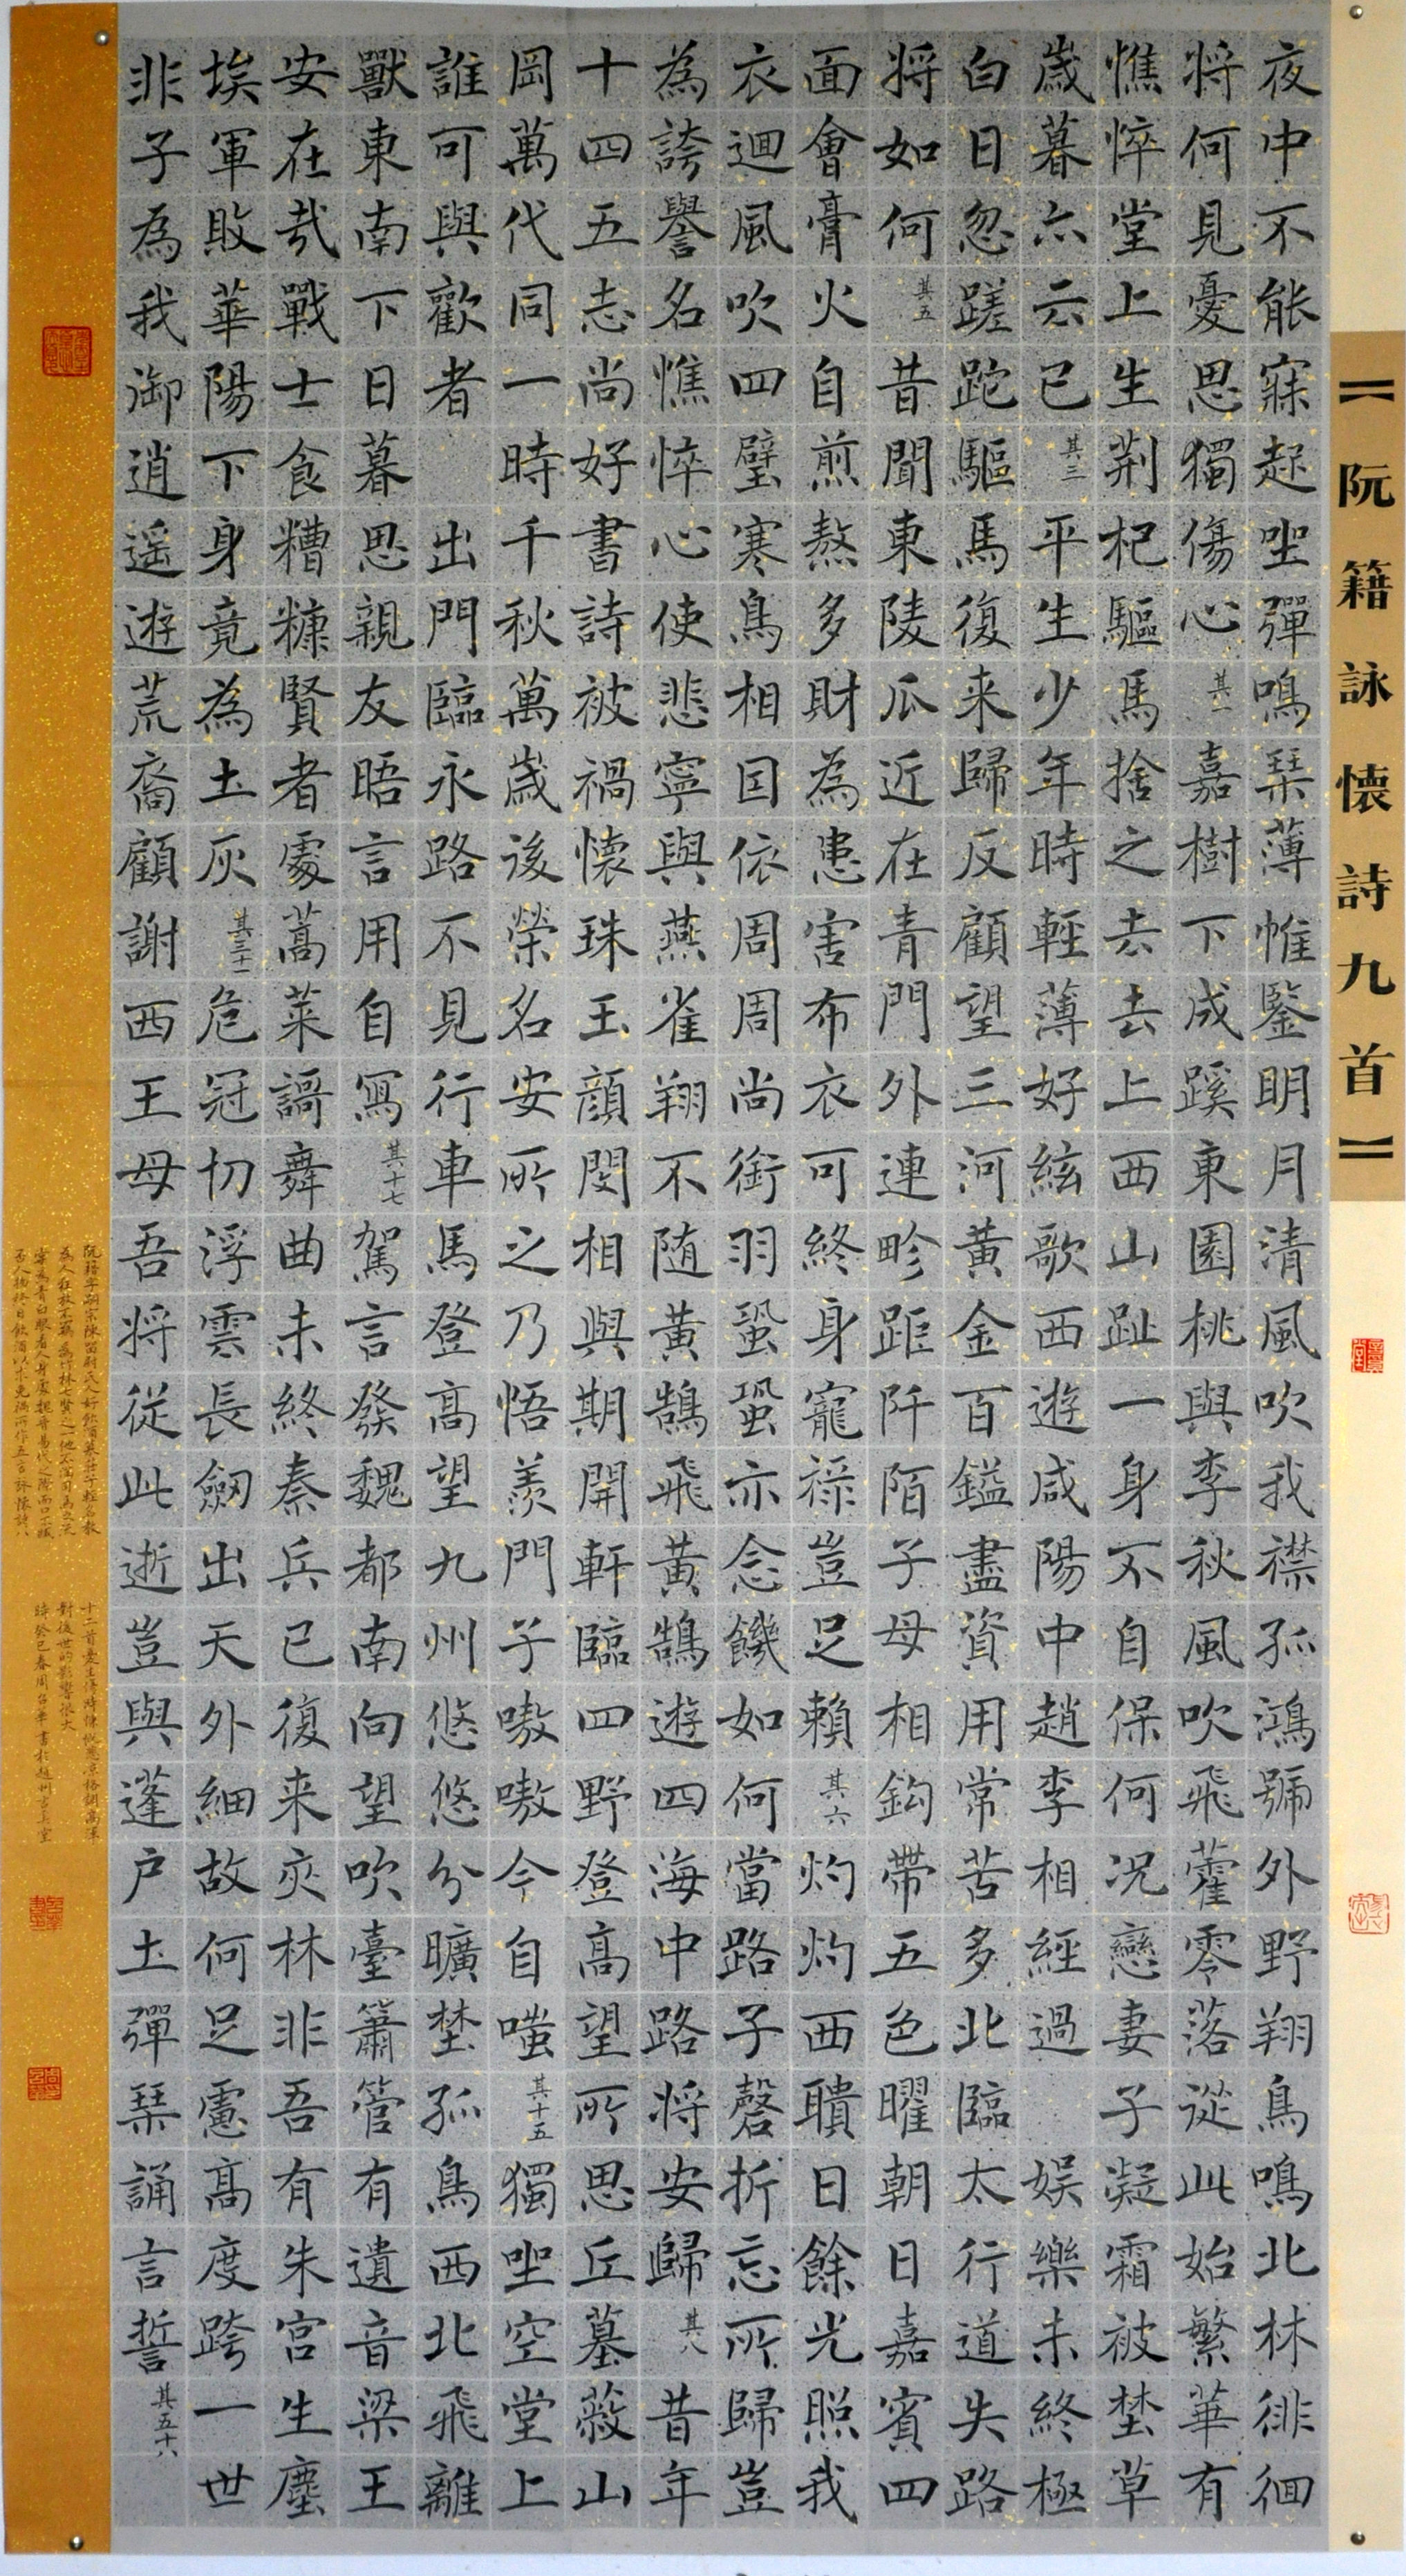 【阮籍詠懷詩九首】
夜中不能寐起坐彈鳴琴薄帷鑒明月清風吹我襟孤鴻號外野翔鳥鳴北林徘徊
將何見憂思獨傷心其一嘉樹下成蹊東園桃與李秋風吹飛藿零落從此始繁華有
憔悴堂上生荆杞驅馬捨之去去上西山趾一身不自保何況戀妻子凝霜被埜草
歲暮亦云已其三平生少年時輕薄好絃歌西遊咸陽中趙李相經過娛樂未終極
白日忽蹉跎驅馬復来歸反顧望三河黃金百鎰盡資用常苦多北臨太行道失路
將如何其五昔聞東陵瓜近在青門外連畛距阡陌子母相鈎帶五色曜朝日嘉賓四
面會膏火自煎熬多財為患害布衣可終身寵祿豈足賴其六灼灼西隤日餘光照我
衣迴風吹四壁寒鳥相因依周周尚銜羽蛩蛩亦念饑如何當路子磬折忘所歸豈
為誇譽名憔悴心使悲寧與燕雀翔不随黃鵠飛黃鵠遊四海中路將安歸其八昔年
十四五志尚好書詩被褐懷珠玉顏閔相與期開軒臨四野登高望所思丘墓蔽山
岡萬代同一時千秋萬歲後榮名安所之乃悟羨門子嗷嗷今自嗤其十五獨坐空堂上
誰可與歡者出門臨永路不見行車馬登高望九州悠悠分曠埜孤鳥西北飛離
獸東南下日暮思親友晤言用自寫其十七駕言發魏都南向望吹臺簫管有遺音梁王
安在哉戰士食糟糠賢者處蒿萊謌舞曲未終秦兵已復来夾林非吾有朱宮生塵
埃軍敗華陽下身竟為土灰其三十一危冠切浮雲長劒出天外細故何足慮高度跨一世
非子為我御逍遥遊荒裔顧謝西王母吾將從此逝豈與蓬户士彈琴誦言誓其五十八
阮籍字嗣宗陳留尉氏人好飲酒莊子輕名教
為人狂放不羈為竹林七賢之一他不滿司馬之
常為青白眼看人身處魏晉易代之際而口不臧
否人物終日飲酒以求免禍所作五言詠懷詩八
十二首憂生傷時慷慨悲凉格調高渾
對後世的影響很大
時癸巳春周華書於越州堂